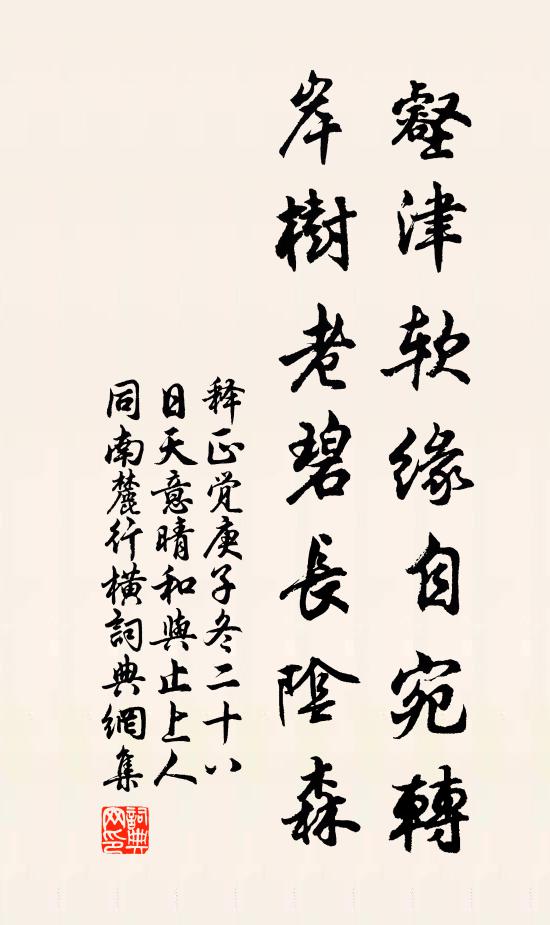 壑津软缘自宛轉
岸樹老碧長陰森
释正觉庚子冬二十八
日天意晴和與止上人
同南麓行橫詞典網集
詞典網印